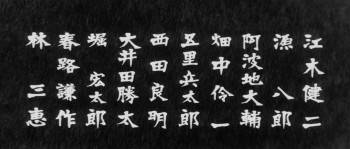 江木健二
漁八郎
阿波地大輔
畑中伶一
五里兵太郎
西田良明
大井田勝太
堀宏太郎
春路謙作
林三恵